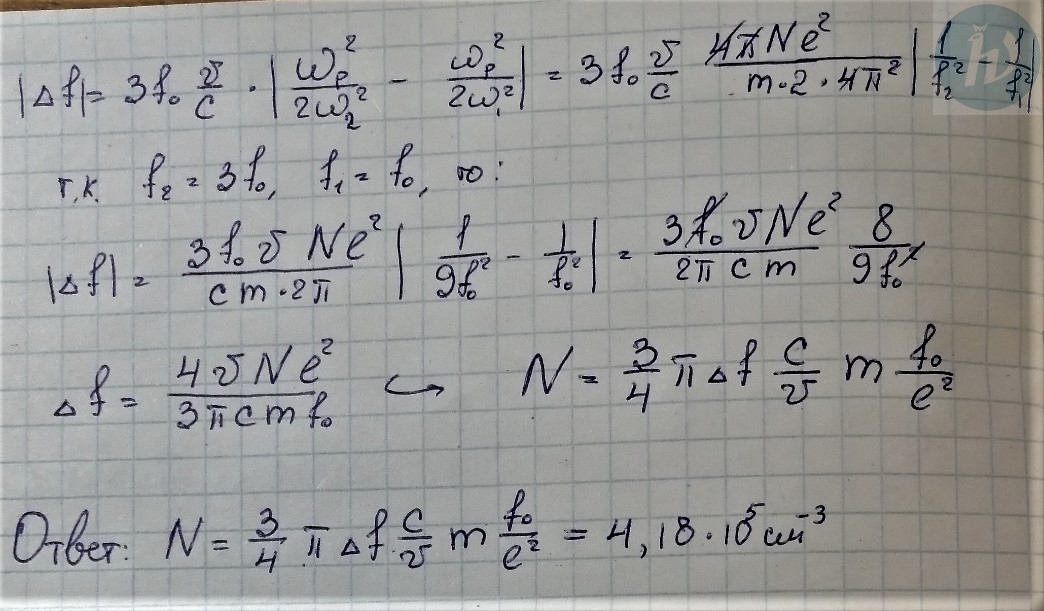 |Δf| = 3f₀ v/c · |ωₚ²/2ω₂² − ωₚ²/2ω₁²| = 3f₀ v/c 4πNe²/(m·2·4π²) |1/f₂² − 1/f₁²|
т.к. f₂ = 3f₀, f₁ = f₀, то:
|Δf| = 3f₀ v Ne²/(c m·2π) |1/9f₀² − 1/f₀²| = 3f₀ v Ne²/(2π c m) 8/9f₀²
Δf = 4 v N e²/(3π c m f₀) ↪ N = 3/4 π Δf c/v m f₀/e²
Ответ: N = 3/4 π Δf c/v m f₀/e² = 4,18·10⁵ см⁻³